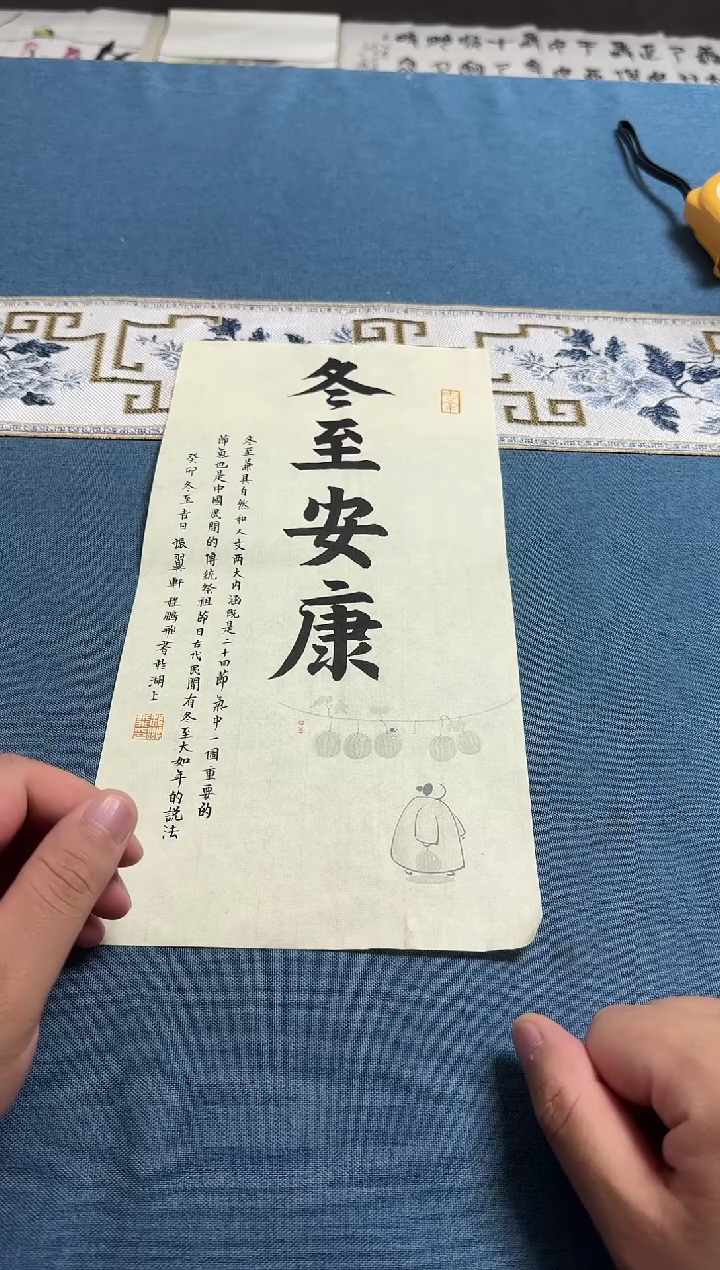 冬至安康
冬至兼具自然和人文两大内涵既是二十四節氣中一個重要的
節氣也是中國民間的傳統祭祖節日古代民間有冬至大如年的説法
癸卯冬至吉日 翼軒程鵬飛書於湖上